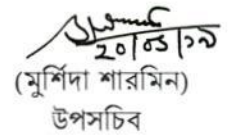 ২০|০১|১৯
(মুর্শিদা শারমিন)
উপসচিব